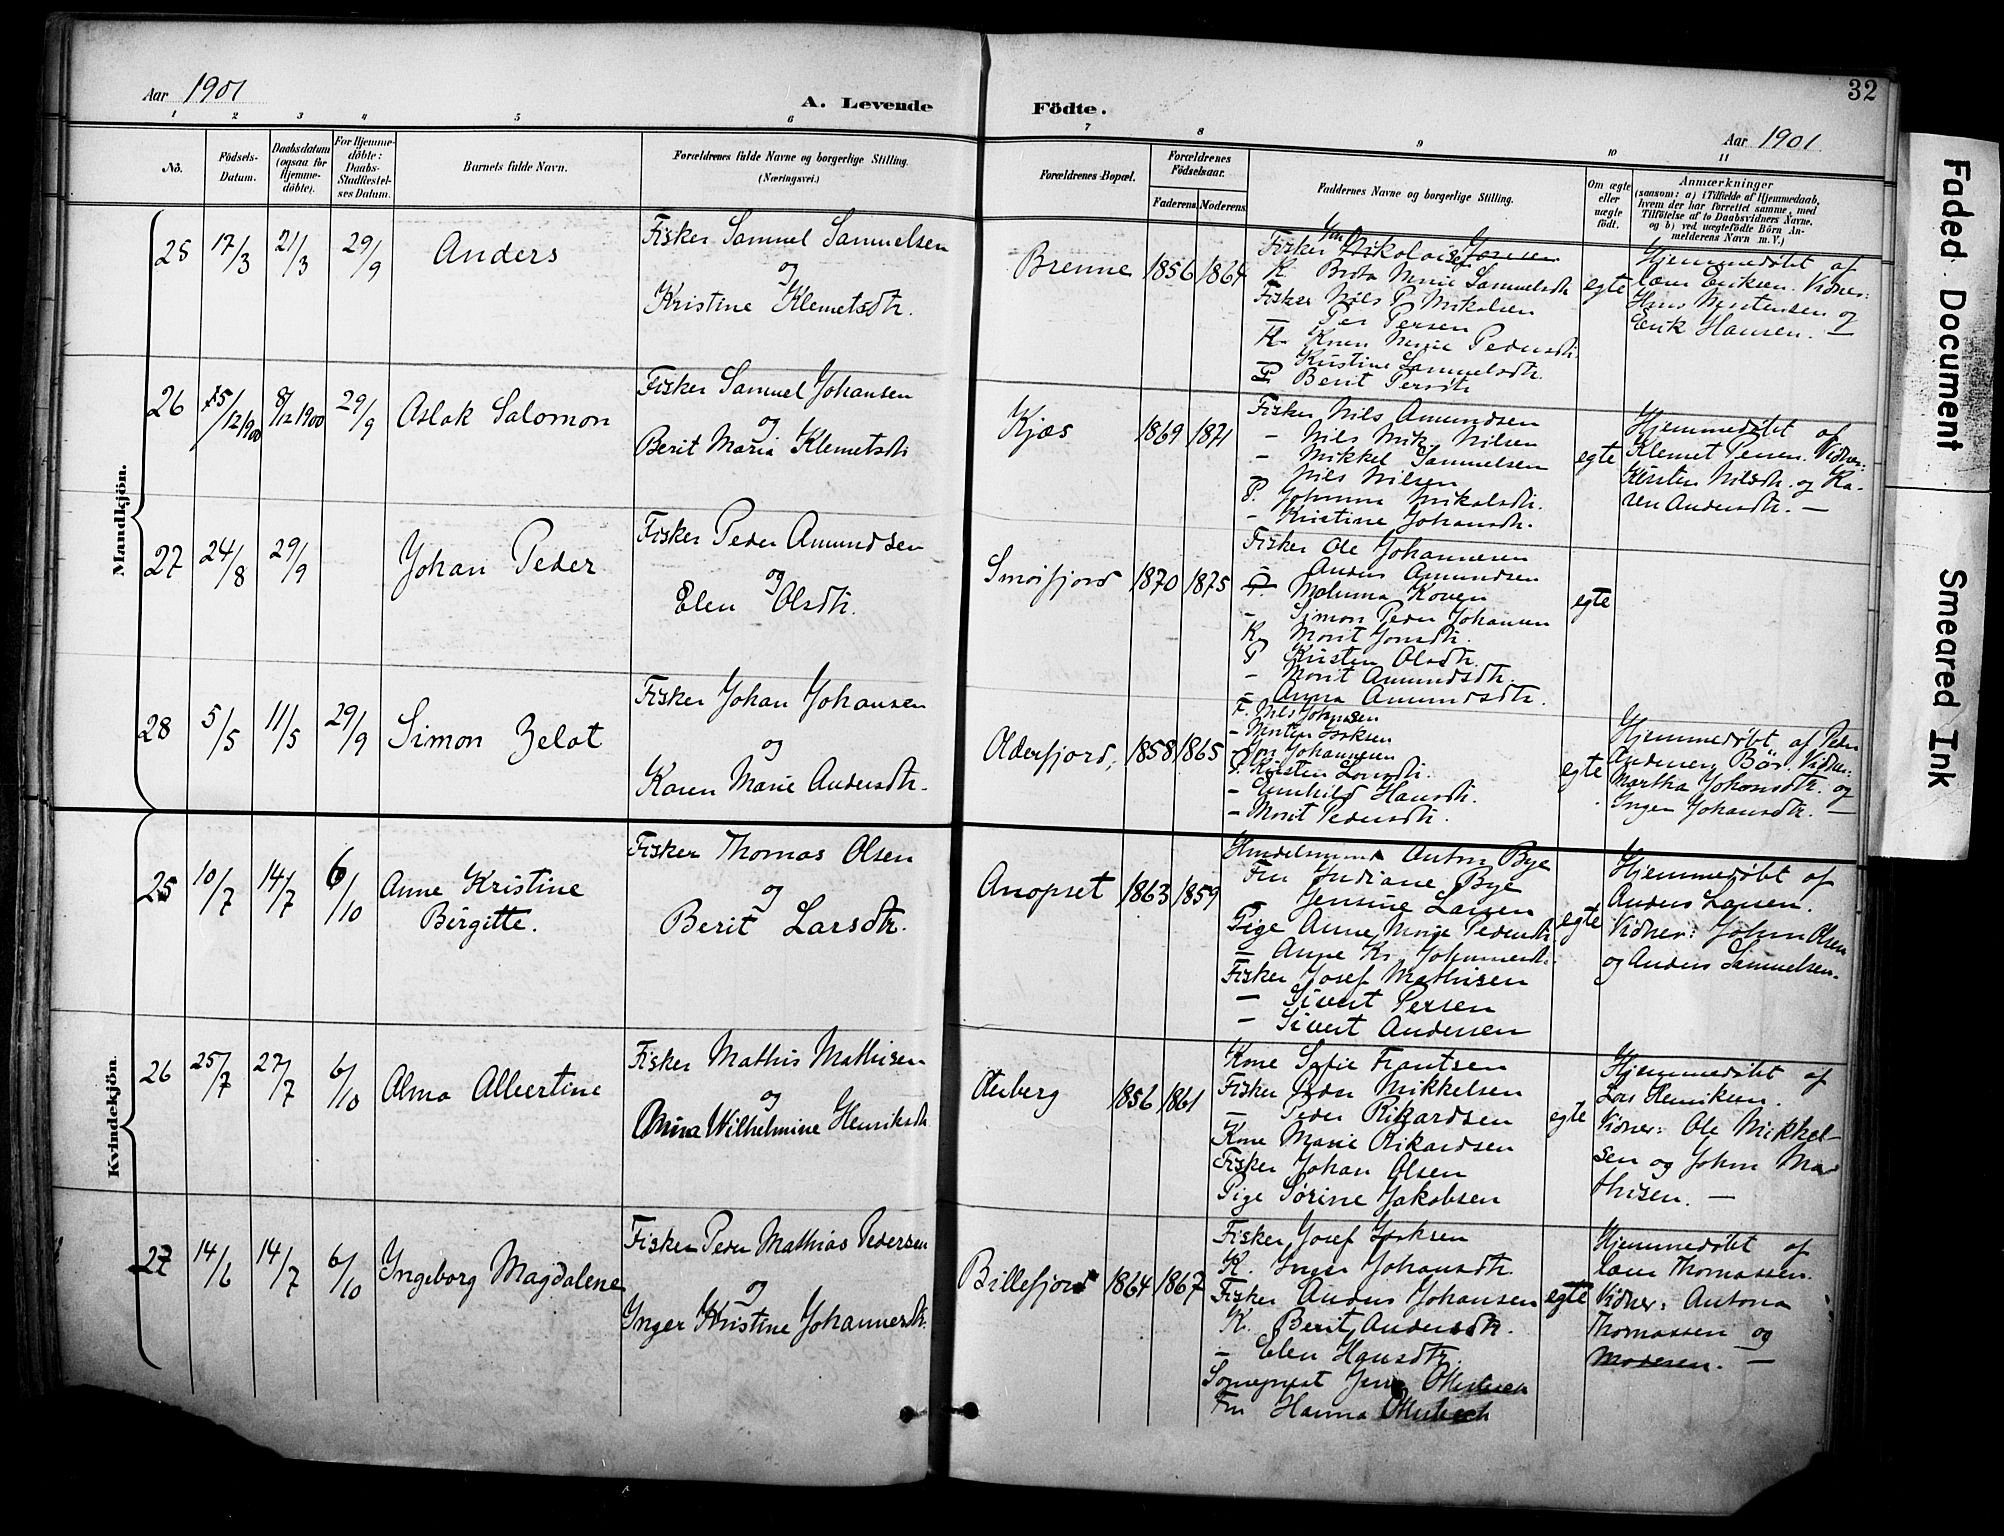 Aar 1901
A. Levende
Födte.
Aar 1901
32
1 2 3 4 5 6 7 8 9 10 11
No.
Födsels-
Datum.
Daabsdatum
(ogsaa for
Hjemme-
döbte).
For Hjemme-
döbte:
Daabs-
Stadfæstel-
ses Datum.
Barnets fulde Navn.
Forældrenes fulde Navne og borgerlige Stilling.
(Næringsvei.)
Forældrenes Bopæl.
Forældrenes
Födselsaar.
Faderens. Moderens.
Faddernes Navne og borgerlige Stilling.
Om ægte
eller
uægte
födt.
Anmærkninger
(saasom: a) i Tilfælde af Hjemmedaab,
hvem der har forrettet samme, med
Tilföielse af to Daabsvidners Navne,
og b) ved uægtefödte Börn An-
melderens Navn m. V.)
Mandkjön.
25 17/3 21/3 29/9 Anders
Fisker Samuel Samuelsen
og
Kristine Klemetsdtr.
Brenne 1856 1864
Fisker Nikolai
K. Berta Marie Samuelsdtr
Fisker Nils P. Nikolsen
Per Persen
K. Karen Marie Pedersdtr.
Kristine Samuelsdtr.
P Berit Persdtr
egte
Hjemmedøbt af
Lærer Eriksen. Vidner:
Hans Mortensen og
Erik Hansen. —
26 15/12 1900 8/12 1900 29/9 Aslak Salomon
Fisker Samuel Johansen
og
Berit Maria Klemetsdtr
Kjæs 1869 1871
Fisker Nils Amundsen
– Nils Nik. Nilsen
– Mikkel Samuelsen
Nils Nilsen
P. Johanna Nikolsdtr.
– Kristine Johansdtr.
egte
Hjemmedøbt af
Klemet Persen. Vidner:
Kirsten Nilsdtr. og Ka-
ren Andersdtr. —
27 24/8 29/9 Johan Peder
Fisker Peder Amundsen
og
Elen Olsdtr.
Smørfjord 1870 1875
Fisker Ole Johannesen
– Anders Amundsen
Simon Peder Johansen
K Marit Jonsdtr.
P Kirsten Olsdtr.
– Marit Amundsdtr.
– Anna Amundsdtr.
egte
28 5/5 11/5 29/9 Simon Zelot
Fisker Johan Johansen
og
Karen Marie Andersdtr.
Olderfjord, 1858 1865
F. Nils Johnsen
– Morten Isaksen
– Jon Johannesen
P. Kirsten Larsdtr.
– Gunhild Hansdtr.
– Marit Pedersdtr.
egte
Hjemmedøbt af Peder
Andersen Bör. Vidner:
Martha Johansdtr. og
Inger Johansdtr. —
Kvindekjön.
25 10/7 14/7 6/10 Anne Kristine
Birgitte.
Fisker Thomas Olsen
og
Berit Larsdtr.
Anopset 1863 1859
Handelsmand Anton Bye
Fru Indiane Bye
Jensine Larsen
Pige Anne Marie Pedersdtr
– Anne Kr. Johannesdtr.
Fisker Josef Mathisen
– Sivert Persen
– Sivert Andersen
egte
Hjemmedøbt af
Anders Larsen.
Vidner: John Olsen
og Anders Samuelsen.
26 25/7 27/7 6/10 Alma Albertine
Fisker Mathis Mathisen
og
Anna Wilhelmine Henriksdtr
1856 1861
Kone Sofie Frantsen
Fisker Peder Mikkelsen
– Peder Rikardsen
Kone Marie Rikardsen
Fisker Johan Olsen
Pige Sørine Jakobsen
egte
Hjemmedøbt af
Lars Henriksen.
Vidner: Ole Mikkel-
sen og John Ma
thisen. —
27 14/6 14/7 6/10 Ingeborg Magdalene
Fisker Peder Mathias Pedersen
og
Inger Kristine Johannesdtr.
Billefjord 1864 1867
Fisker Josef Isaksen
K. Inger Johansdtr.
Fisker Anders Johansen
K. Berit Andersdtr.
– Elen Hansdtr.
Sogneprest Jens Otterbech
Fru Hanna Otterbech
egte
Hjemmedøbt af
Lærer Thomassen.
Vidner: Antona
Thomassen og
Madesen. —
Faded Document
Smeared Ink